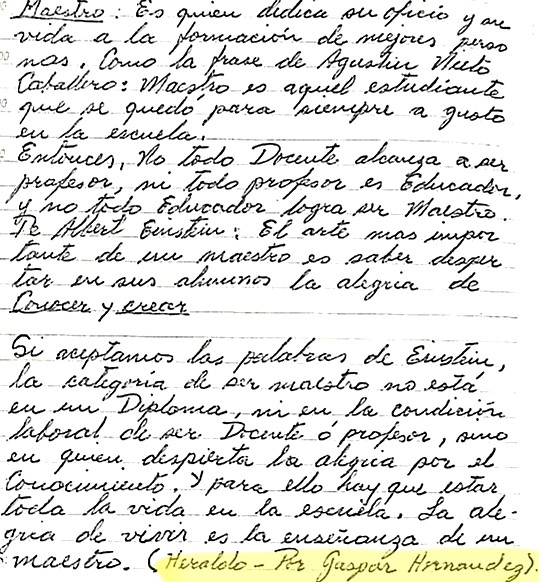 Maestro: Es quien dedica su oficio y su
vida a la formación de mejores perso
nas. Como la frase de Agustin Nieto
Caballero: Maestro es aquel estudiante
que se quedó para siempre a gusto
en la escuela.
Entonces, No todo Docente alcanza a ser
profesor, ni todo profesor es Educador,
y no todo Educador logra ser Maestro.
De Albert Einstein: El arte mas impor
tante de un maestro es saber desper
tar en sus alumnos la alegria de
Conocer y crear
Si aceptamos las palabras de Einstein,
la categoría de ser maestro no está
en un Diploma, ni en la condición
laboral de ser Docente ó profesor, sino
en quien despierta la alegria por el
Conocimiento. y para ello hay que estar
toda la vida en la escuela. La ale-
gria de vivir es la enseñanza de un
maestro. (Heraldo - Por Gaspar Hernandez).